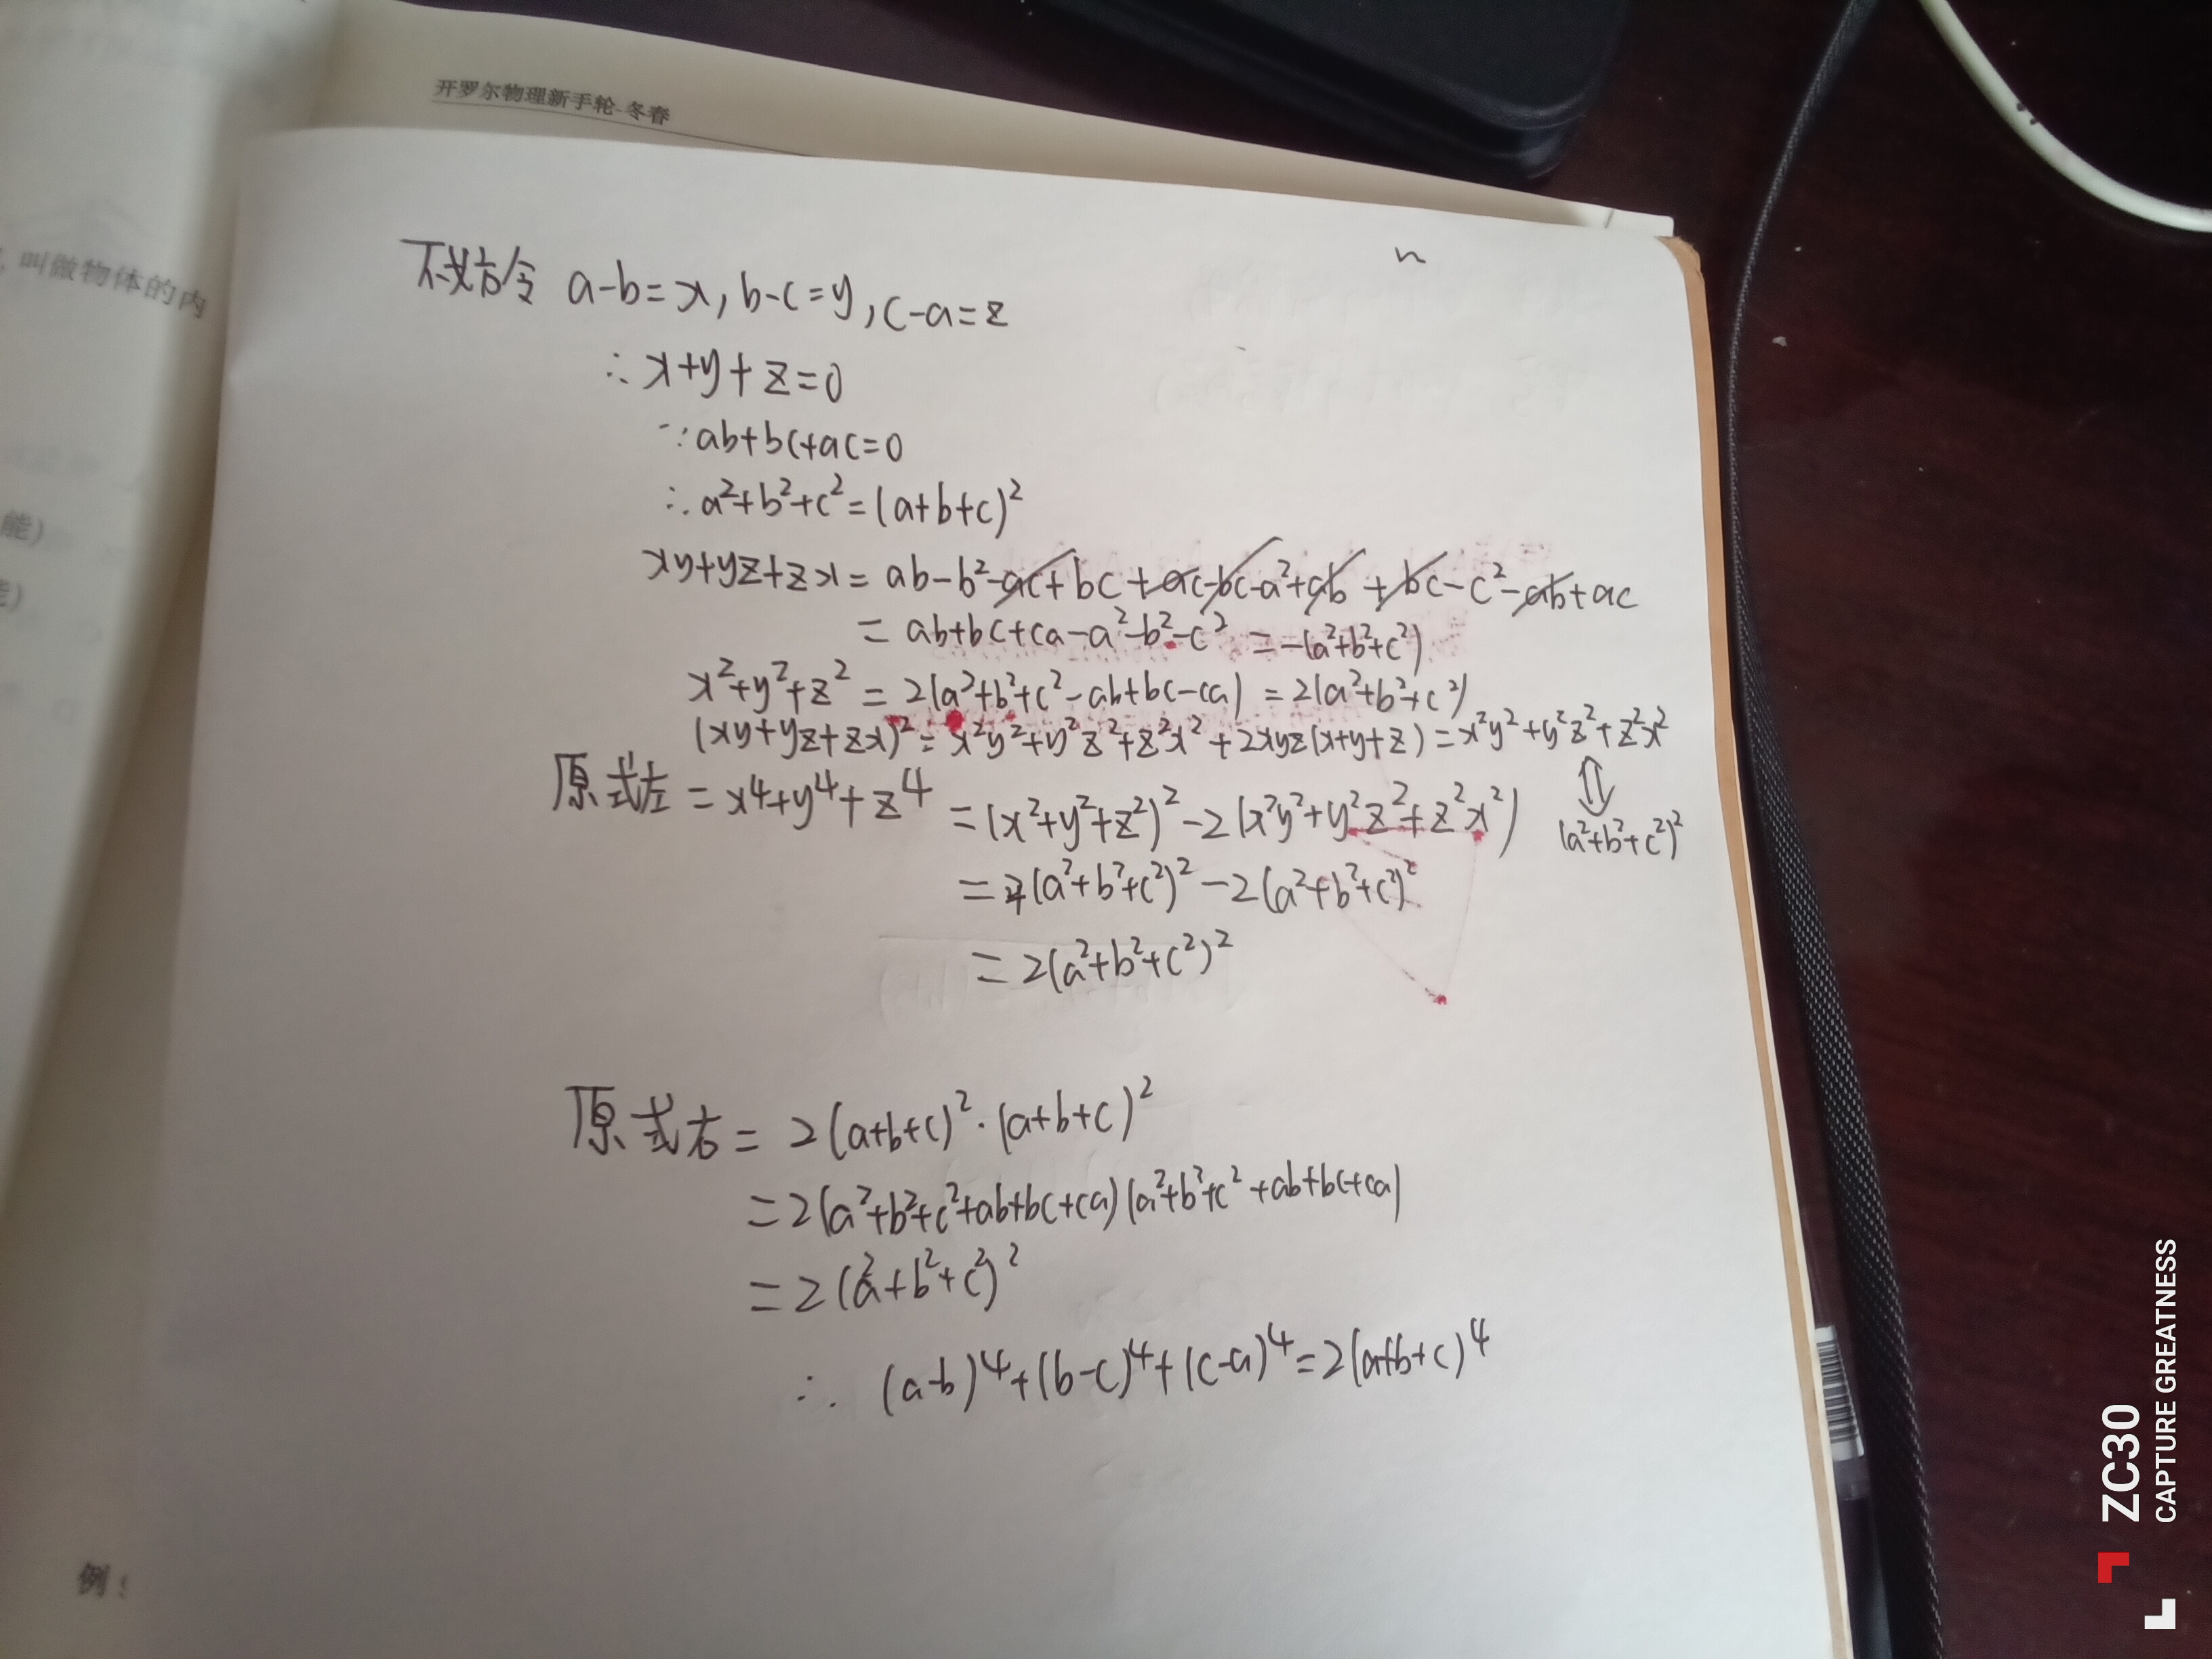 开罗尔物理新手轮-冬春
,叫做物体的内
能)
不妨令 a-b=x, b-c=y, c-a=z
∴ x+y+z=0
∵ab+bc+ac=0
∴a²+b²+c²=(a+b+c)²
xy+yz+zx=ab-b²-ac+bc+ac-bc-a²+ab+bc-c²-ab+ac
=ab+bc+ca-a²-b²-c² =-(a²+b²+c²)
x²+y²+z²=2(a²+b²+c²-ab+bc-ca)=2(a²+b²+c²)
(xy+yz+zx)²=x²y²+y²z²+z²x²+2xyz(x+y+z)=x²y²+y²z²+z²x²
⇕
(a²+b²+c²)²
原式左=x⁴+y⁴+z⁴=(x²+y²+z²)²-2(x²y²+y²z²+z²x²)
=4(a²+b²+c²)²-2(a²+b²+c²)²
=2(a²+b²+c²)²
原式右=2(a+b+c)²·(a+b+c)²
=2(a²+b²+c²+ab+bc+ca)(a²+b²+c²+ab+bc+ca)
=2(a²+b²+c²)²
∴ (a-b)⁴+(b-c)⁴+(c-a)⁴=2(a+b+c)⁴
例
ZC30
CAPTURE GREATNESS